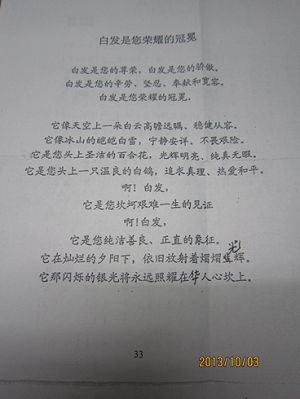 白发是您荣耀的冠冕
白发是您的尊荣，白发是您的骄傲。
白发是您的辛劳、坚忍、奉献和宽容。
白发是您荣耀的冠冕。
它像天空上一朵白云高瞻远瞩、稳健从容。
它像冰山的皑皑白雪，宁静安详、不畏艰险。
它是您头上圣洁的百合花，光辉明亮、纯真无暇。
它是您头上一只温良的白鸽，追求真理、热爱和平。
啊！白发，
它是您坎坷艰难一生的见证
啊！白发，
它是您纯洁善良、正直的象征。
它在灿烂的夕阳下，依旧放射着熠熠光辉。
它那闪烁的银光将永远照耀在华人心坎上。
33
2013/10/03